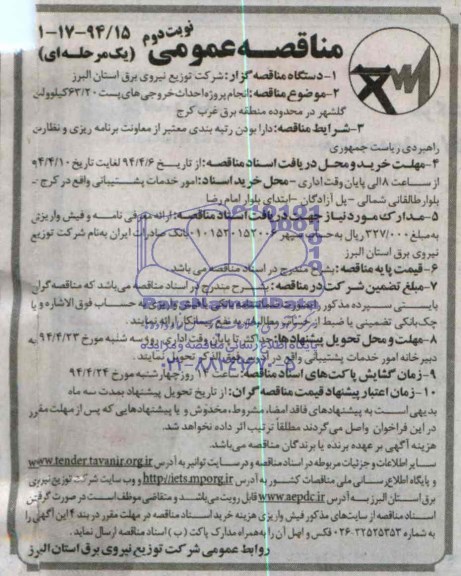 ۱-۱۷-۹۴/۱۵
نوبت دوم
مناقصه عمومی (یک مرحله ای)
۱- دستگاه مناقصه گزار: شرکت توزیع نیروی برق استان البرز
۲- موضوع مناقصه: انجام پروژه احداث خروجی های پست ۶۳/۲۰ کیلوولت
گلشهر در محدوده منطقه برق غرب کرج
۳- شرایط مناقصه: دارا بودن رتبه بندی معتبر از معاونت برنامه ریزی و نظارت
راهبردی ریاست جمهوری
۴- مهلت خرید و محل دریافت اسناد مناقصه: از تاریخ ۹۴/۴/۶ لغایت تاریخ ۹۴/۴/۱۰
از ساعت ۸ الی پایان وقت اداری - محل خرید اسناد: امور خدمات پشتیبانی واقع در کرج -
بلوار طالقانی شمالی - پل آزادگان - ابتدای بلوار امام رضا
۵- مدارک مورد نیاز جهت دریافت اسناد مناقصه: ارائه معرفی نامه و فیش واریزی
به مبلغ ۳۲۷/۰۰۰ ریال به حساب سپهر بانک صادرات ایران به نام شرکت توزیع
نیروی برق استان البرز
۶- قیمت پایه مناقصه: بشرح مندرج در اسناد مناقصه می باشد
۷- مبلغ تضمین شرکت در مناقصه: بشرح مندرج در اسناد مناقصه می باشد که مناقصه گران
بایستی سپرده مذکور را بصورت ضمانتنامه بانکی یا فیش واریزی به حساب فوق الاشاره و یا
چک بانکی تضمینی یا ضبط از مطالبات به نفع دستگاه ارائه
۸- مهلت و محل تحویل پیشنهادها: حداکثر تا پایان وقت اداری روز سه شنبه مورخ ۹۴/۴/۲۳ به
دبیرخانه امور خدمات پشتیبانی واقع در آدرس فوق الذکر تحویل نمایند.
۹- زمان گشایش پاکت های اسناد مناقصه: ساعت ۱۴ روز چهارشنبه مورخ ۹۴/۴/۲۴
۱۰- زمان اعتبار پیشنهاد قیمت مناقصه گران: از تاریخ تحویل پیشنهاد بمدت سه ماه
بدیهی است به پیشنهادهای فاقد امضا، مشروط، مخدوش و یا پیشنهادهایی که پس از مهلت مقرر
در این فراخوان واصل می گردند مطلقاً ترتیب اثر داده نخواهد شد.
هزینه آگهی بر عهده برنده یا برندگان مناقصه می باشد.
سایر اطلاعات و جزئیات مربوطه در اسناد مناقصه و در سایت توانیر به آدرس www.tender.tavanir.org.ir
و پایگاه اطلاع رسانی ملی مناقصات کشور به آدرس http://iets.mporg.ir و وب سایت شرکت توزیع نیروی
برق استان البرز به آدرس www.aepdc.ir قابل رویت می باشد و متقاضی موظف است در صورت گرفتن
اسناد مناقصه از سایت های مذکور فیش واریزی هزینه خرید اسناد مناقصه در مهلت مقرر در بند ۴ این آگهی را
به شماره ۳۲۵۲۵۳۵۳-۰۲۶ فکس و اصل آن را به همراه مدارک پاکت (ب) اسناد مناقصه ارسال نماید.
روابط عمومی شرکت توزیع نیروی برق استان البرز